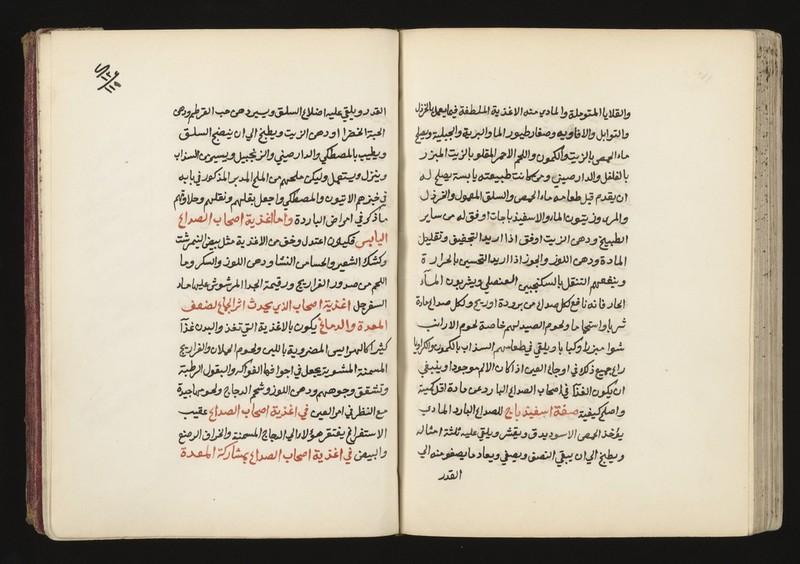 والقلايا المتوبلة والمادي منه الاغذية الملطفة فيما يعمل بالخردل
والتوابل والافاويه وصغار طيور الماء والبرية والجبلية ويصلح
ماء الحمص بالزيت والكمون واللحم الاحمر المقلو بالزيت المبزر
بالفلفل والدارصيني ومن كانت طبيعته يابسة يصلح له
ان يقدم قبل طعامه ماء الحمص والسلق المعمول والخردل
والمرى وزيتون الماء والاسفيذباجات اوفق له من ساير
الطبيخ ودهن الزيت اوفق اذا اريد التجفيف وتقليل
المادة ودهن اللوز والجوز اذا اريد التسخين بالحرارة
وينفعهم التنقل بالسكنجبين العنصلي ويشربون المآء
الحار فانه نافع لكل صداع من برودة او ريح ولكل صداع مادة
شربا واستحماما ولحوم الصيد لهم خاصة لحوم الارانب
شوا مبزرا وكبابا ويلقى في طعامهم السذاب بالكمون والكراويا
راع جميع ذلك في اوجاع العين اذا كان الالم موجودا وينبغي
ان يكون الغذا في اصحاب الصداع البارد عن مادة اقل كمية
واصلح كيفية صفة اسفيذباج للصداع البارد المادي
يؤخذ الحمص الاسود يدق ويقشر ويلقى عليه ثلثة امثاله
ويطبخ الى ان يبقى النصف ويصفى ويعاد ما يصفو منه الى
القدر
القدر ويلقى عليه اضلاع السلق ويسير دهن حب القرطم ودهن
الحبة الخضرا او دهن الزيت ويطبخ الى ان ينضج السلق
ويطيب بالمصطكي والدارصيني والزنجبيل ويسير من السذاب
وينزل ويستعمل وليكن ملحهم من الملح المدبر المذكور في بابه
في خبزهم الانيون والمصطكي واجعل بقلهم ونقلهم وحلاواتهم
ما ذكر في امراض الباردة واما اغذية اصحاب الصداع
اليابس فيكون اعتدل وخف من الاغذية مثل بيض النيمرشت
وكشك الشعير والحسا من النشا ودهن اللوز والسكر وما
اللحم من صدور الفراريج ورقبة الجدا المرشوش عليها ماء
السفرجل اغذية اصحاب الذي يحدث اثر الجماع لضعف
المعدة والدماغ يكون بالاغذية التي تغذ والبدن غذآ
كثيرا كالهرايس المضروبة باللبن ولحوم الحملان والفراريج
المسمنة المشوية يجعل في اجوافها الفواكه والبقول الرطبة
وتشقق وجوههم ودهن اللوز وشحم الدجاج ولحومها جيدة
مع النظر في امر العين في اغذية اصحاب الصداع عقيب
الاستفراغ يفتقر هؤلاء الى الدجاج المسمنة والخراف الرضع
والبيض في اغذية اصحاب الصداع بمشاركة المعدة